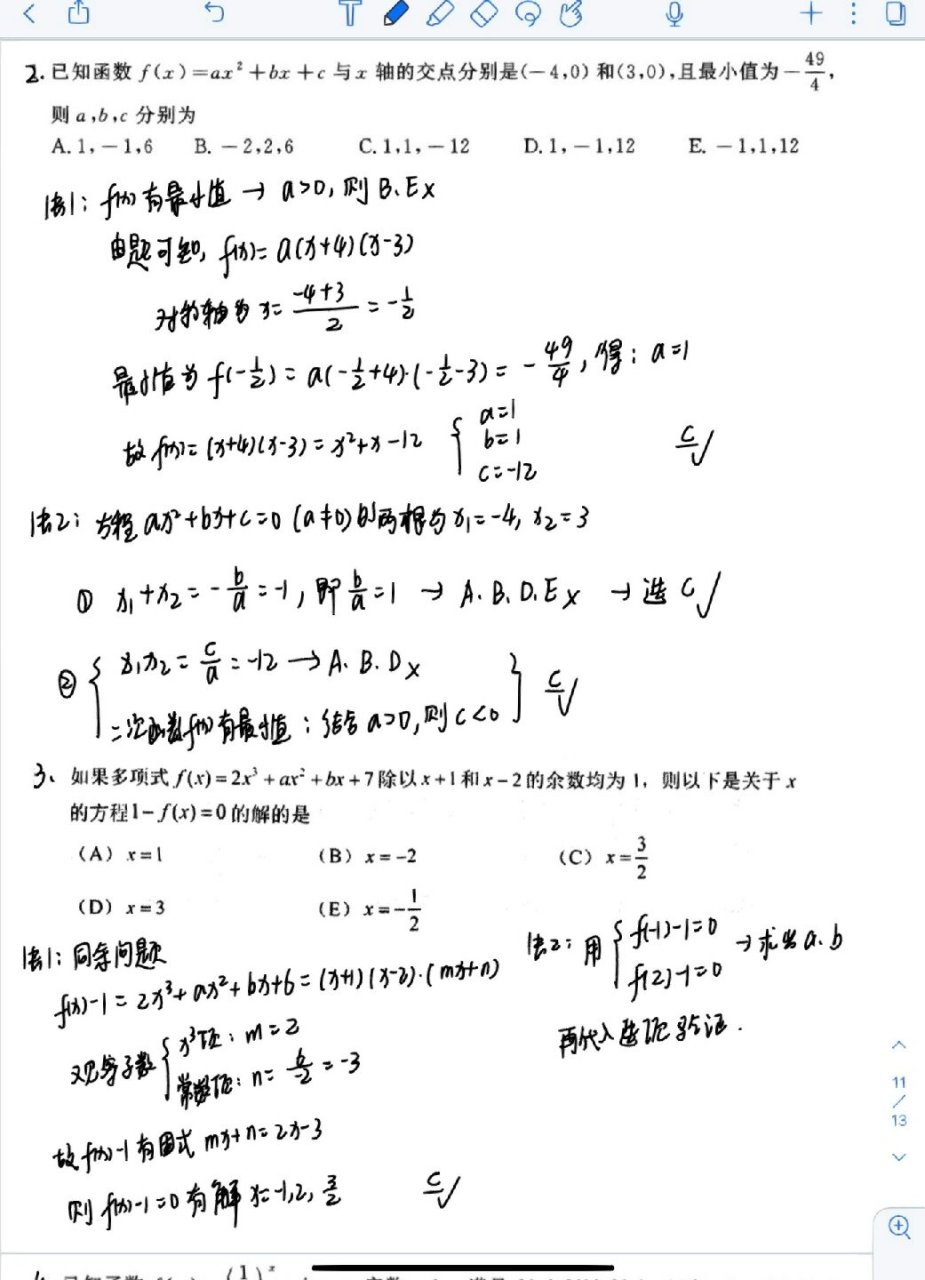 2. 已知函数 f(x)=ax²+bx+c 与 x 轴的交点分别是(-4,0)和(3,0),且最小值为-49/4,
则 a,b,c 分别为
A. 1,-1,6 B. -2,2,6 C. 1,1,-12 D. 1,-1,12 E. -1,1,12
法1: f(x)有最小值 → a>0, 则 B.E×
由题可知, f(x)= a(x+4)(x-3)
对称轴为 x= (-4+3)/2 = -1/2
最小值为 f(-1/2) = a(-1/2+4)·(-1/2-3) = -49/4, 得: a=1
故 f(x)= (x+4)(x-3) = x²+x-12 { a=1 b=1 c=-12 C√
法2: 方程 ax²+bx+c=0 (a≠0) 的两根为 x₁=-4, x₂=3
① x₁+x₂ = -b/a = -1, 即 b/a =1 → A.B.D.E× → 选 C√
② { x₁x₂ = c/a = -12 → A.B.D×
二次函数f(x)有最小值: 结合 a>0, 则 c<0 } C√
3、如果多项式 f(x)=2x³+ax²+bx+7除以x+1和x-2的余数均为 1, 则以下是关于 x
的方程1-f(x)=0的解的是
(A) x=1 (B) x=-2 (C) x=3/2
(D) x=3 (E) x=-1/2
法1: 同余问题
f(x)-1 = 2x³+ax²+bx+6 = (x+1)(x-2)·(mx+n)
观察系数 { x³项: m=2
常数项: n= 6/-2 = -3
故 f(x)-1 有因式 mx+n= 2x-3
则 f(x)-1=0 有解 x=-1,2, 3/2 C√
法2: 用 { f(-1)-1=0 f(2)-1=0 → 求出 a.b
再代入选项验证.
11
/
13